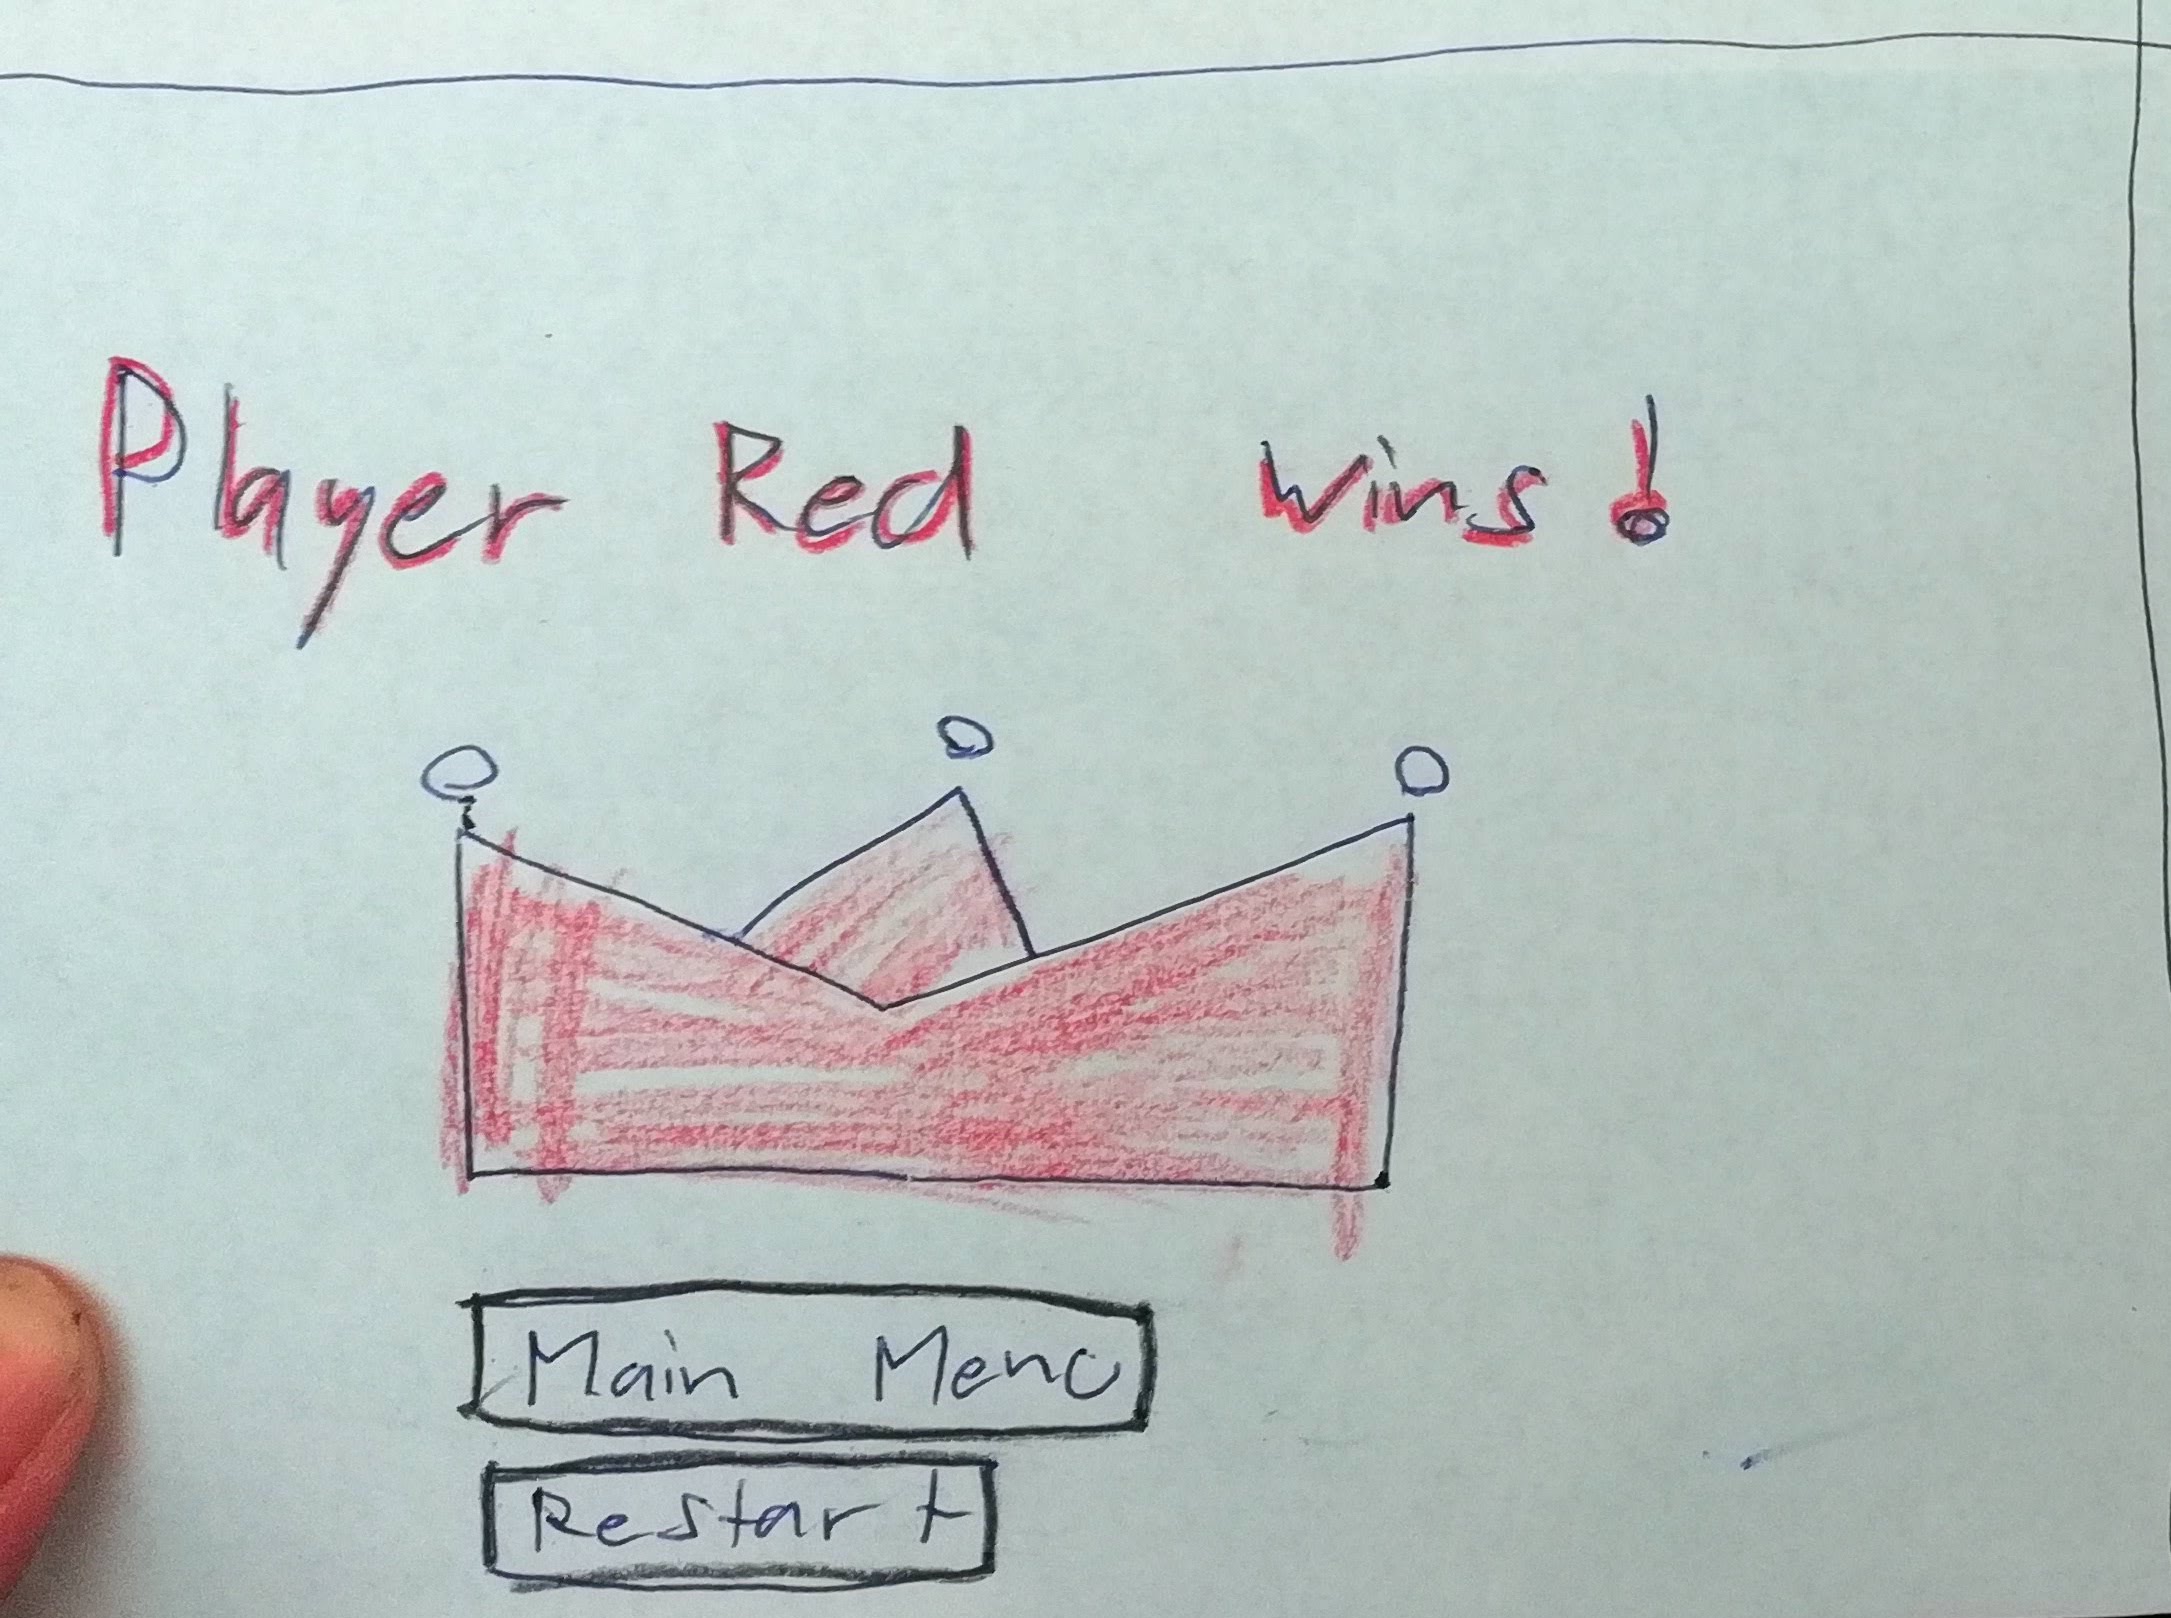 Player Red wins!
Main Menu
Restart